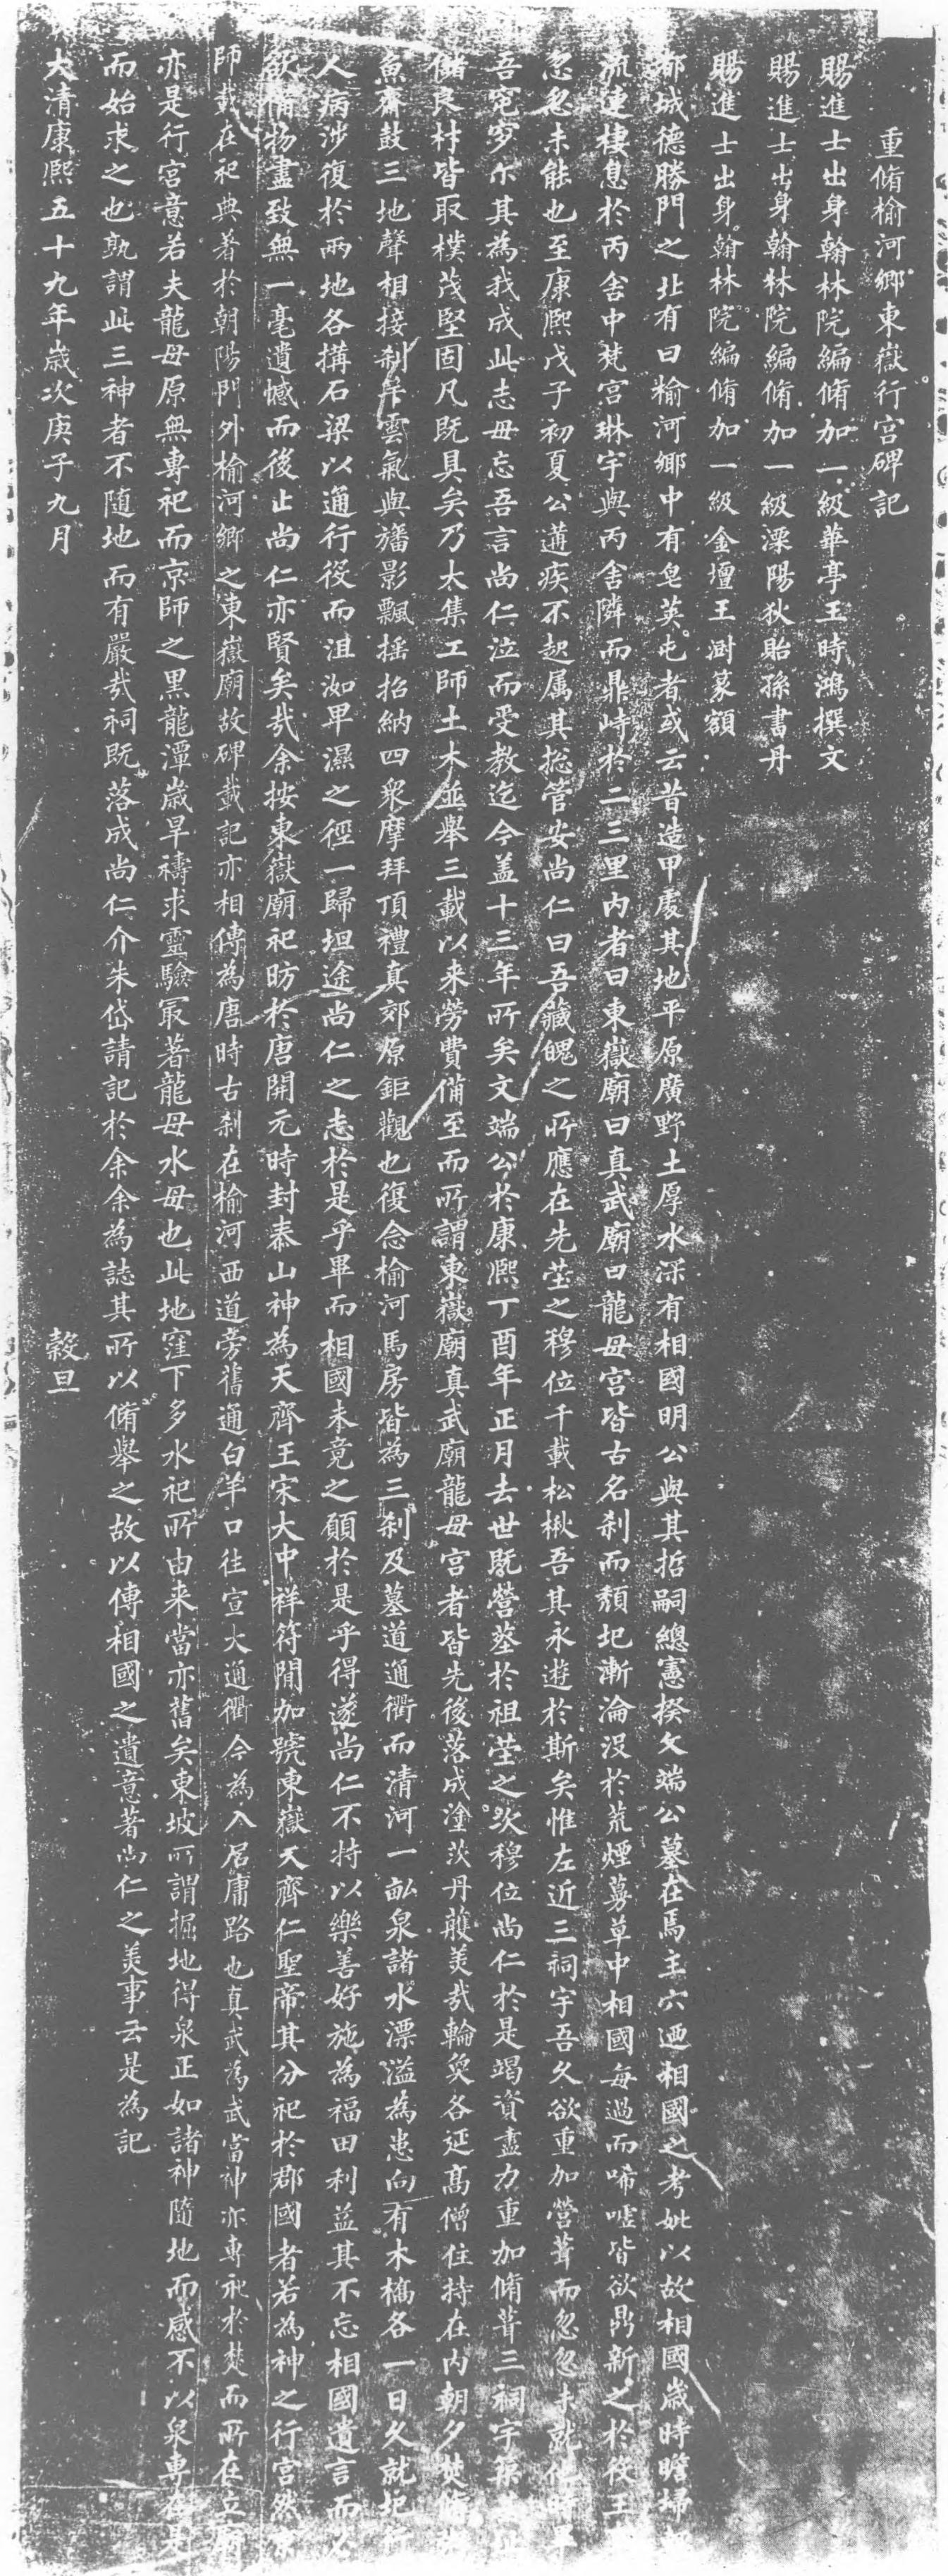 重脩榆河鄉東嶽行宮碑記
賜進士出身翰林院編脩加一級華亭王時鴻撰文
賜進士出身翰林院編脩加一級溧陽狄貽孫書丹
賜進士出身翰林院編脩加一級金壇王澍篆額
都城德勝門之北有曰榆河鄉中有皂英屯者或云昔造甲處其地平原廣野土厚水深有相國明公與其哲嗣總憲揆文端公墓在焉主穴迺相國之考妣以故相國歲時瞻埽
流連棲息於丙舍中梵宮琳宇與丙舍隣而鼎峙於二三里内者曰東嶽廟曰真武廟曰龍母宮皆古名刹而頽圮漸淪沒於荒煙蔓草中相國每過而唏噓皆欲鼎新之於後王
忽忽未能也至康熙戊子初夏公遘疾不起属其總管安尚仁曰吾藏魄之所應在先塋之穆位千載松楸吾其永遊於斯矣惟左近三祠宇吾久欲重加營葺而忽忽未就他時
吾窀穸尒其為我成此志毋忘吾言尚仁泣而受教迄今盖十三年所矣文端公於康熙丁酉年正月去世旣營墓於祖塋之次穆位尚仁於是竭資盡力重加脩葺三祠宇築
儲良材皆取樸茂堅固凡既具矣乃大集工師土木並舉三載以来勞費備至而所謂東嶽廟真武廟龍母宮者皆先後落成塗茨丹雘美哉輪奐各延髙僧住持在内朝夕焚脩
魚齋鼓三地聲相接刹竿雲氣與旛影飄揺招納四衆摩拜頂禮真郊原鉅觀也復念榆河馬房皆為三刹及墓道通衢而清河一畝泉諸水漂溢為患向有木橋各一日久就圮行
人病涉復於兩地各搆石梁以通行役而沮洳卑濕之徑一歸坦途尚仁之志於是乎畢而相國未竟之願於是乎得遂尚仁不特以樂善好施為福田利益其不忘相國遺言而必
欲備物盡致無一毫遺憾而後止尚仁亦賢矣哉余按東嶽廟祀昉於唐開元時封泰山神為天齊王宋大中祥符間加號東嶽天齊仁聖帝其分祀於郡國者若為神之行宮然京
師載在祀典著於朝陽門外榆河鄉之東嶽廟故碑載記亦相傳為唐時古刹在榆河西道旁舊通白羊口往宣大通衢今為入居庸路也真武為武當神亦專祀於楚而所在立廟
亦是行宮意若夫龍母原無專祀而京師之黒龍潭歲旱禱求靈驗冣著龍母水母也此地窪下多水祀所由来當亦舊矣東坡所謂掘地得泉正如諸神隨地而感不以泉專在是
而始求之也孰謂此三神者不随地而有嚴哉祠既落成尚仁介朱岱請記於余余為誌其所以脩舉之故以傳相國之遺意著尚仁之美事云是為記
大清康熙五十九年歲次庚子九月　穀旦